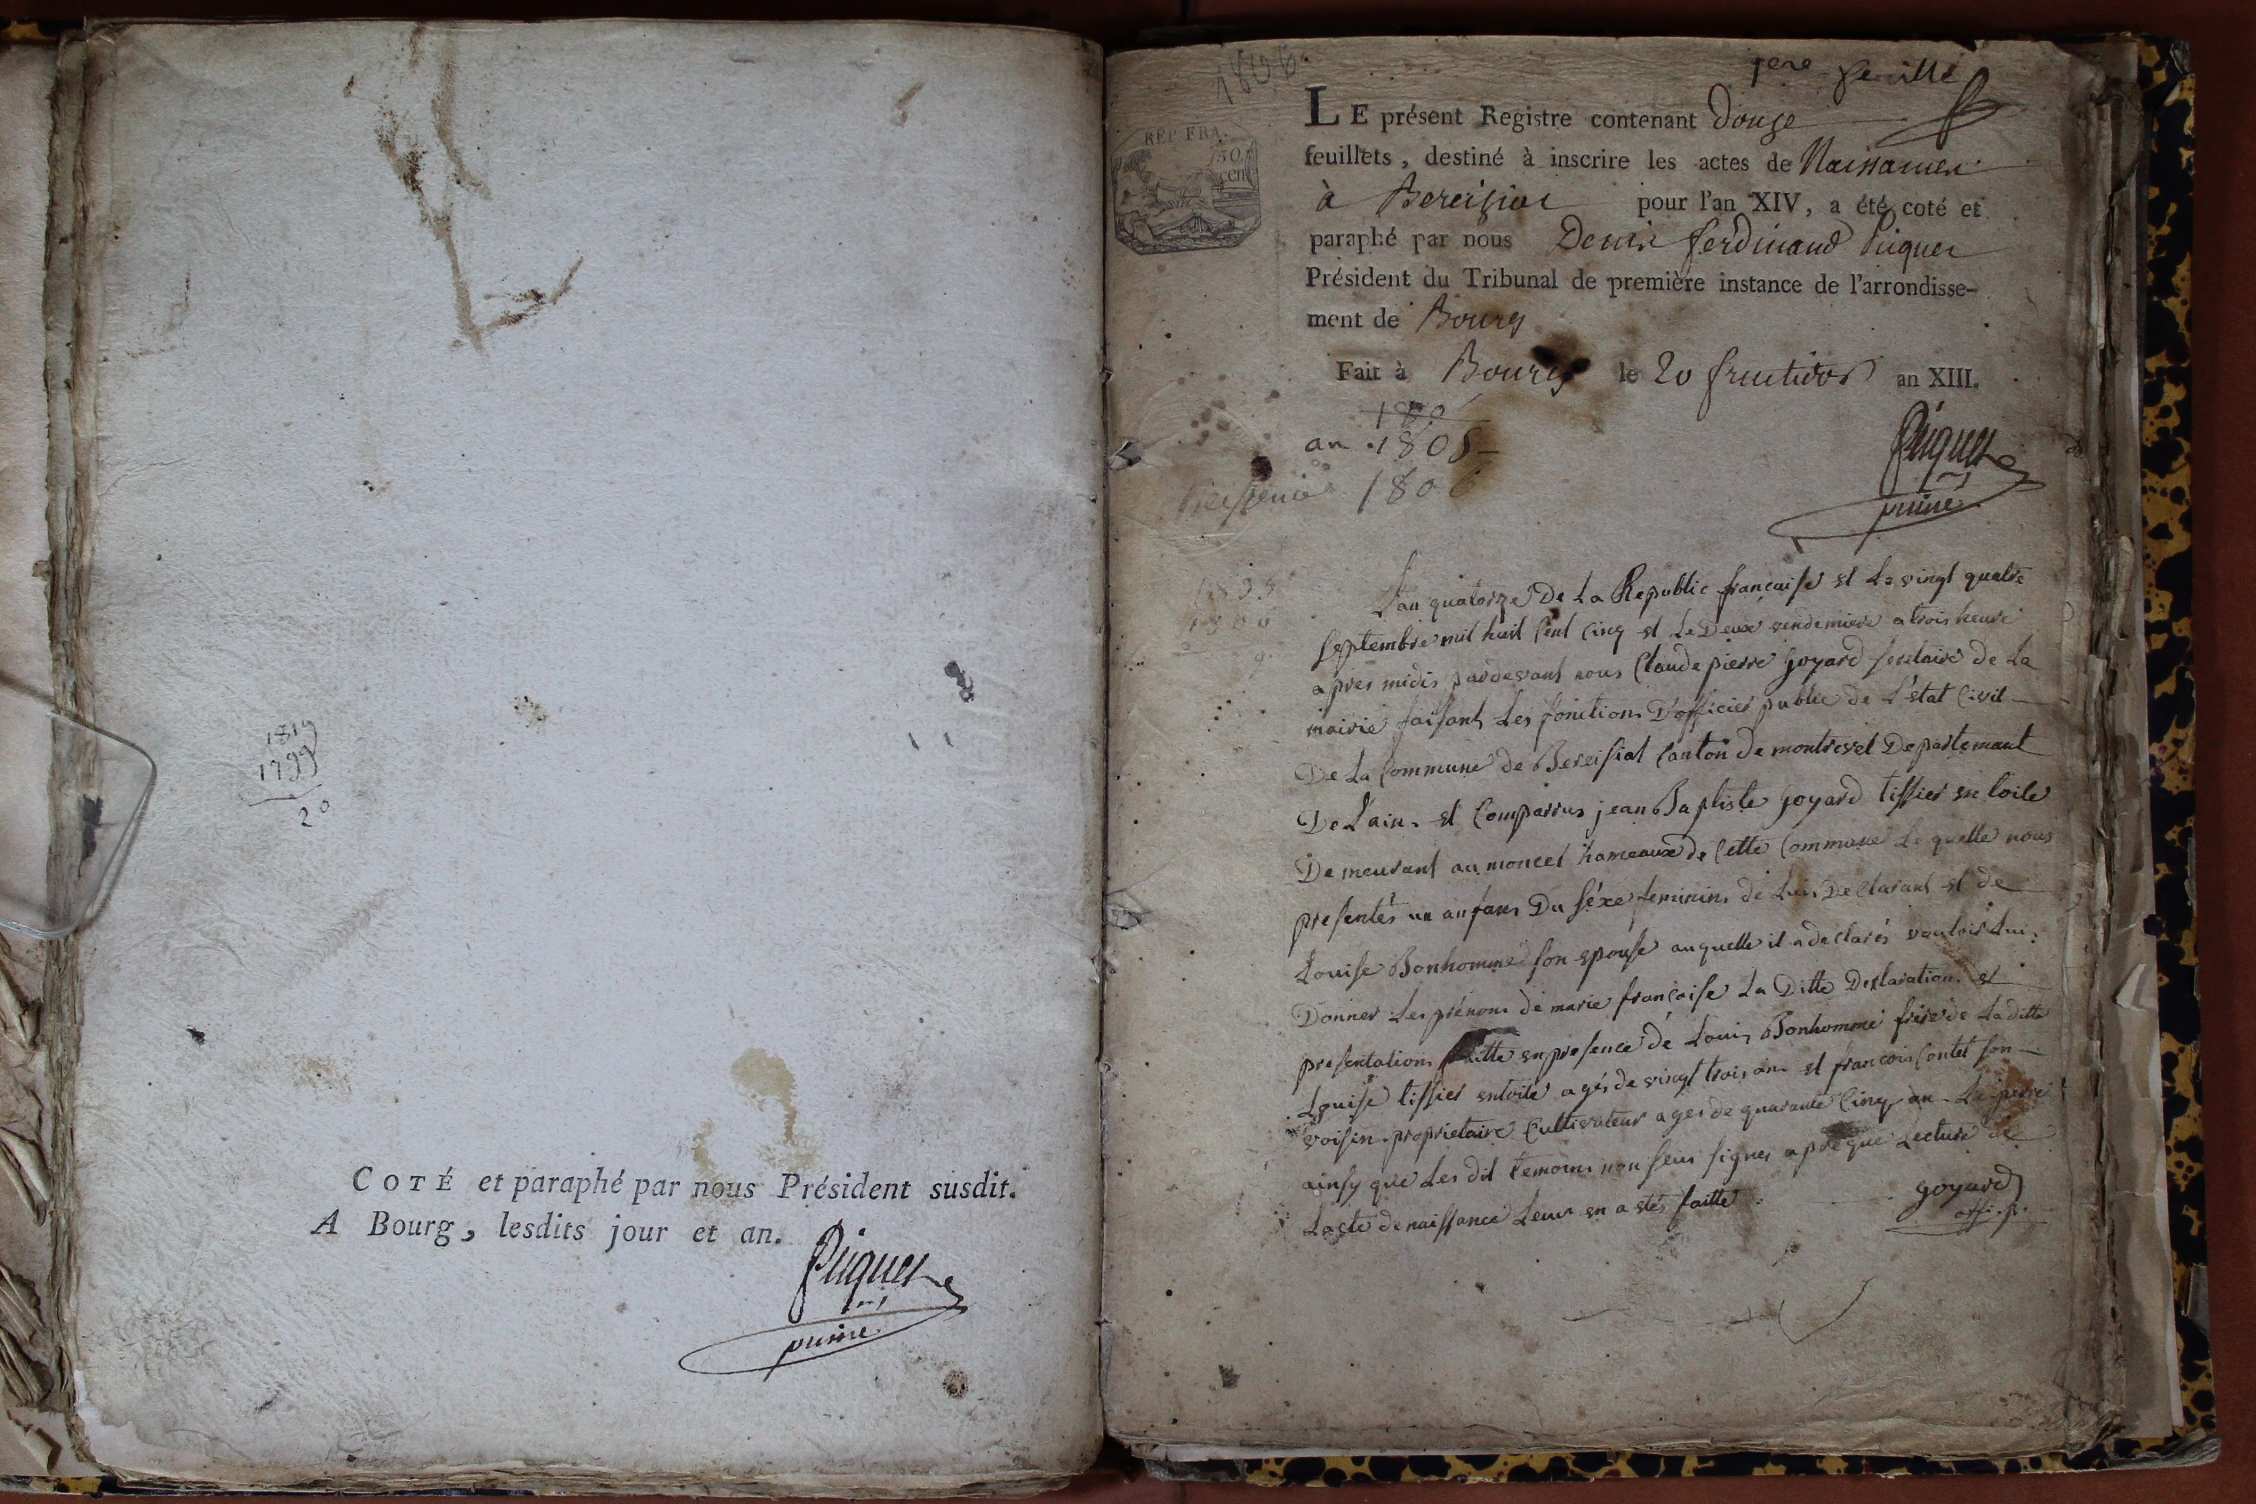 1819
1799
20
COTÉ et paraphé par nous Président susdit.
A Bourg, lesdits jour et an.
Piquet
1806
1ere feuille
REP. FRA.
50
cent
LE présent Registre contenant Douze
feuillets, destiné à inscrire les actes de Naissances
à Bereisiat pour l'an XIV, a été coté et
paraphé par nous Denis ferdinand Piquet
Président du Tribunal de première instance de l'arrondisse-
ment de Bourg
Fait à Bourg le 20 fructidor an XIII.
180
an 1805
1806
Piquet
L'an quatorze De La Republic francaise et Le vingt quatre
Septembre mil huit Cent Cinq et Le Deux vendemiere a trois heure
apres midis pardevant nous Claude pierre goyard secretaire de La
mairie faisant Les fonctions D'officier public de L'état Civil
De La Commune de Bereisiat Canton de montrevel Departemant
De L'ain. et Comparrus jean Baptiste goyard tissier en toile
Demeurant au moncel hameaux de Cette Commune Le quelle nous
presentés un anfans Du séxe feminins de Lui Declarant et de
Louise Bonhomme son epouse auquelle il a declarés vouloir Lui
Donner Les prénoms de marie francoise La Ditte Declaration et
presentations faitte en presence de Louis Bonhomme frere de La ditte
Louise tissier entoile agés de vingt trois ans et francois Contet son
voisin proprietaire Cultivateur agés de quarante Cinq an Le perre
ainsy que Les dit temoins non seus signer apres que Lecture de
Lacte de naissance Leur en a etés faitte
goyard
offi. p.